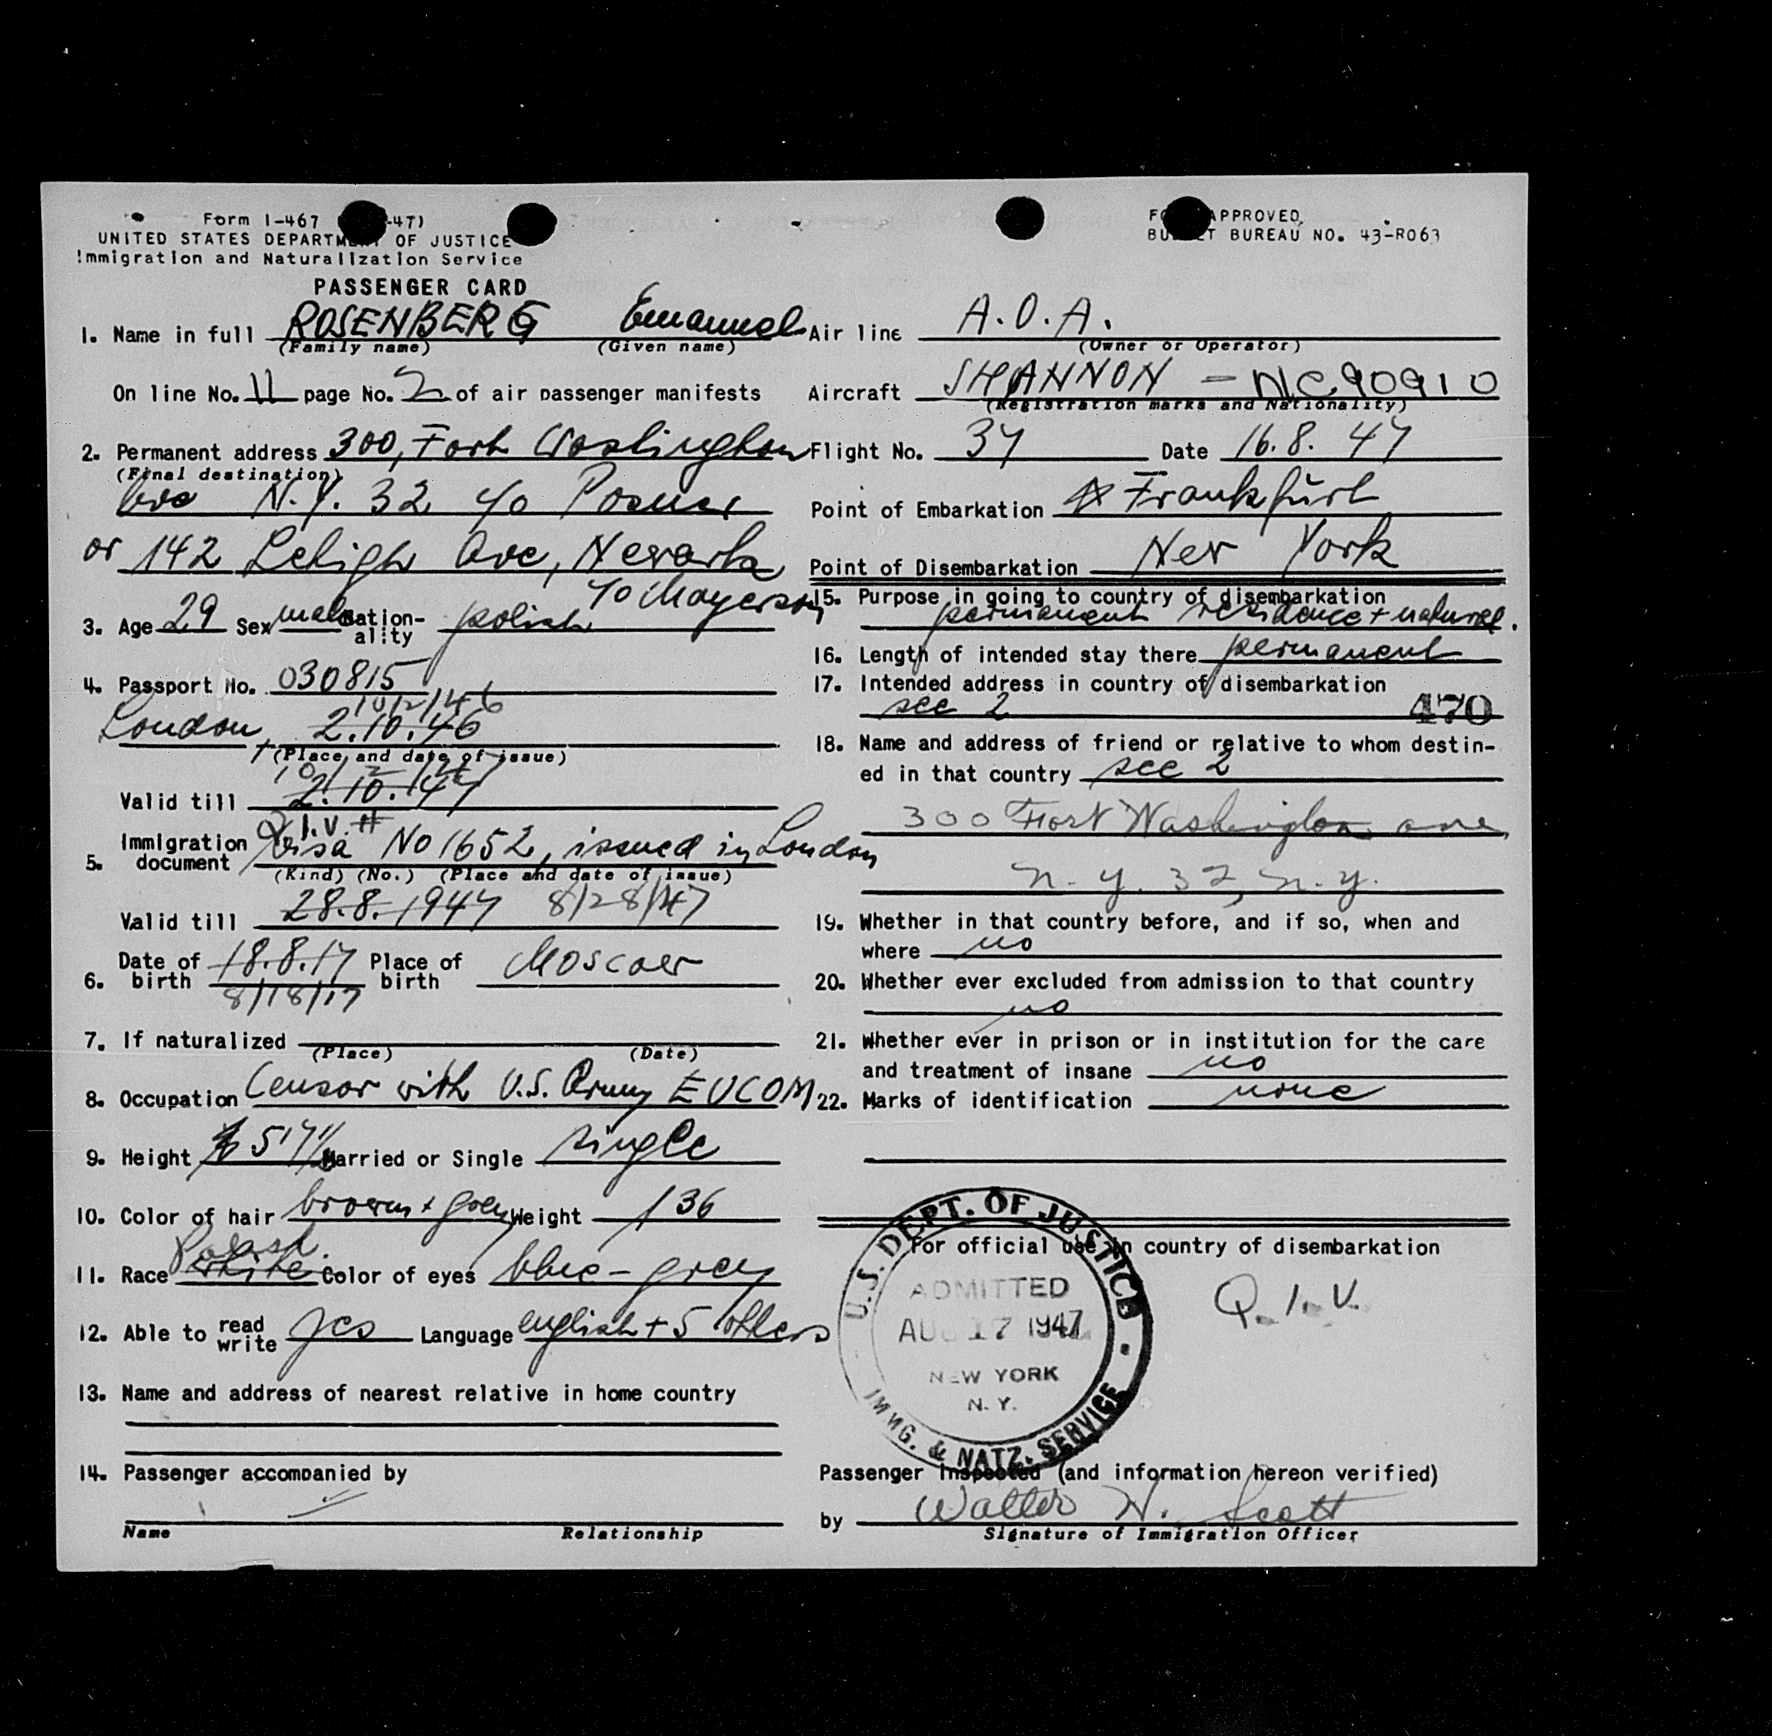 Form I-467 -47)
UNITED STATES DEPARTMENT OF JUSTICE
Immigration and Naturalization Service
PASSENGER CARD
FORM APPROVED
BUDGET BUREAU NO. 43-R063
1. Name in full ROSENBERG Emanuel
(Family name) (Given name)
On line No. 11 page No. 2 of air passenger manifests
2. Permanent address 300, Fort Washington
(Final destination)
Ave N.Y. 32 c/o Posner
or 142 Lehigh Ave, Newark
c/o Mayerson
3. Age 29 Sex male Nation-ality polish
4. Passport No. 030815
10/2/46
London, 2.10.46
(Place and date of issue)
10/2/47
Valid till 2.10.47
Q.I.V. #
5. Immigration document Visa No 1652, issued in London
(Kind) (No.) (Place and date of issue)
Valid till 28.8.1947 8/28/47
6. Date of birth 18.8.17 Place of birth Moscow
8/18/17
7. If naturalized
(Place) (Date)
8. Occupation Censor with U.S. Army EUCOM
9. Height 5'7" Married or Single single
10. Color of hair brown + grey Weight 136
Polish
11. Race white Color of eyes blue - grey
12. Able to read write yes Language english + 5 others
13. Name and address of nearest relative in home country
14. Passenger accompanied by
Name Relationship
Air line A.O.A.
(Owner or Operator)
Aircraft SHANNON - NC90910
(Registration marks and Nationality)
Flight No. 37 Date 16.8.47
Point of Embarkation Frankfurt
Point of Disembarkation New York
15. Purpose in going to country of disembarkation
permanent residence + natural.
16. Length of intended stay there permanent
17. Intended address in country of disembarkation
see 2 470
18. Name and address of friend or relative to whom destin-
ed in that country see 2
300 Fort Washington ave
N.Y. 32, N.Y.
19. Whether in that country before, and if so, when and
where no
20. Whether ever excluded from admission to that country
no
21. Whether ever in prison or in institution for the care
and treatment of insane no
22. Marks of identification none
For official use in country of disembarkation
U.S. DEPT. OF JUSTICE
ADMITTED
AUG 17 1947
NEW YORK
N.Y.
IMMG. & NATZ. SERVICE
Q.I.V.
Passenger Inspected (and information hereon verified)
by Walter W. Scott
Signature of Immigration Officer